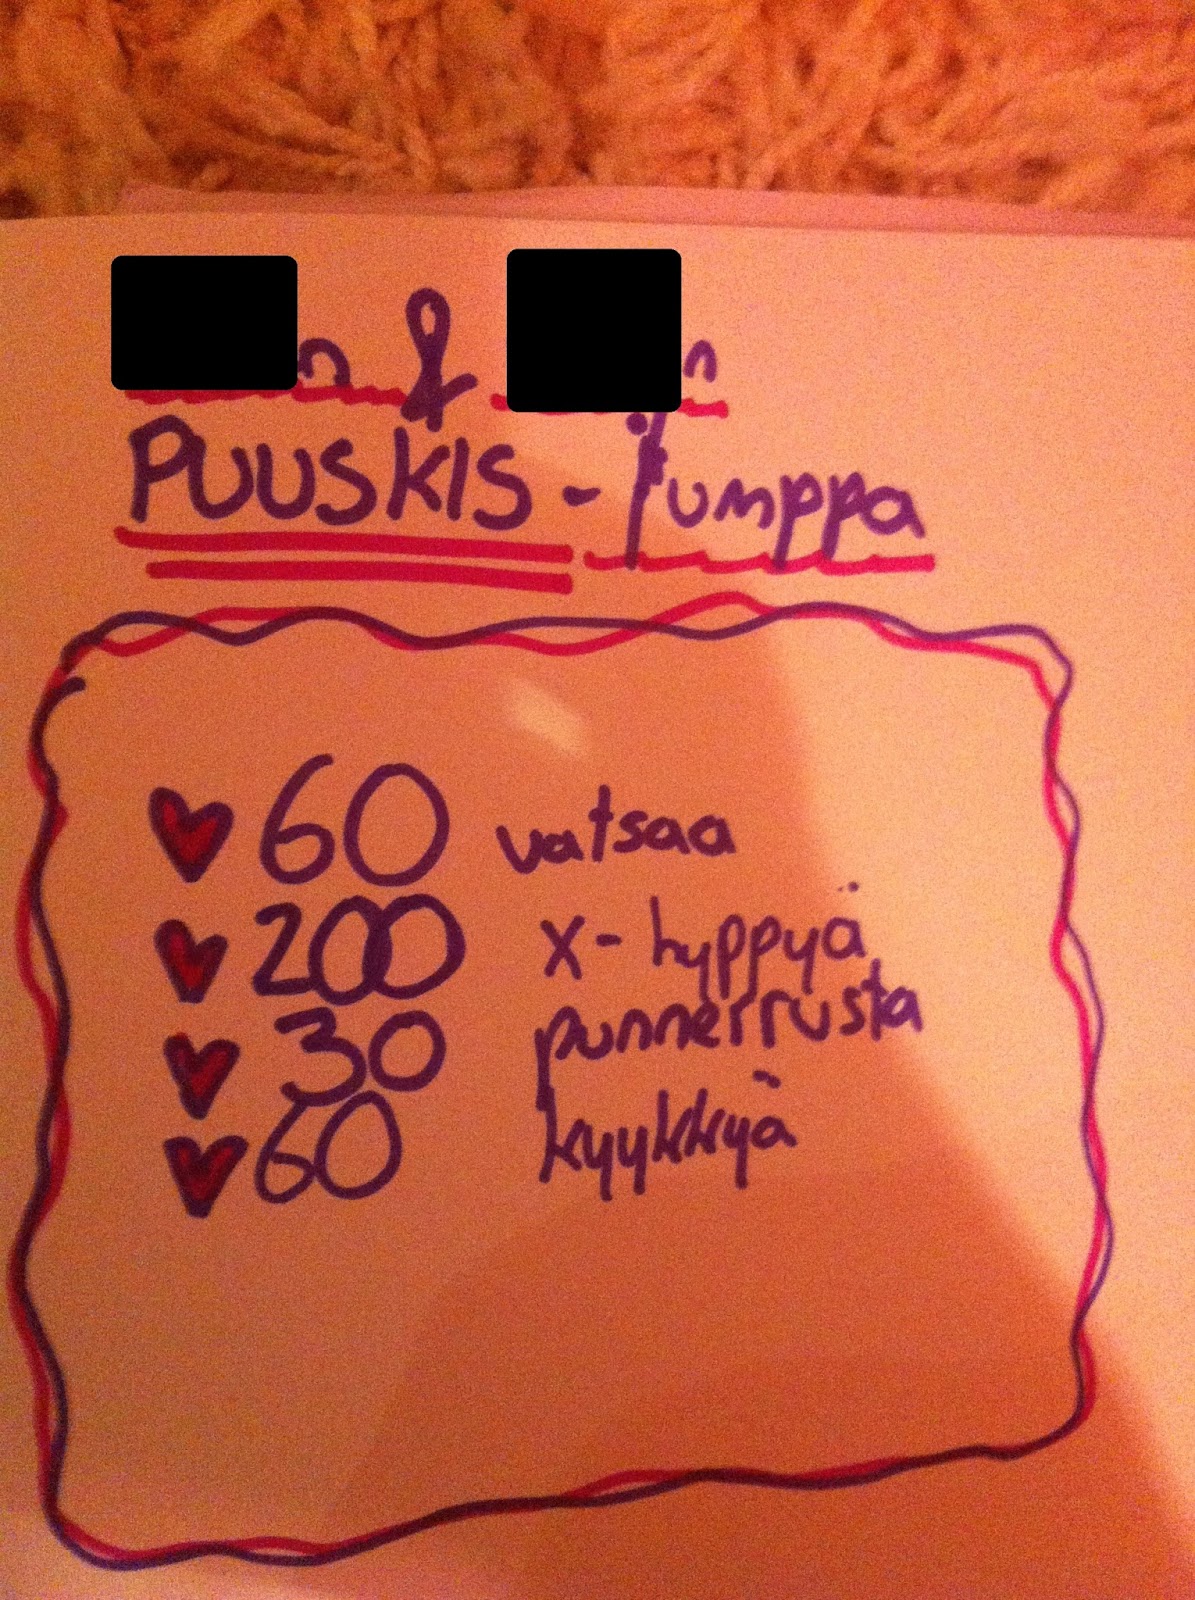 n & n
PUUSKIS - jumppa
60 vatsaa
200 x-hyppyä
30 punnerrusta
60 kyykkyä